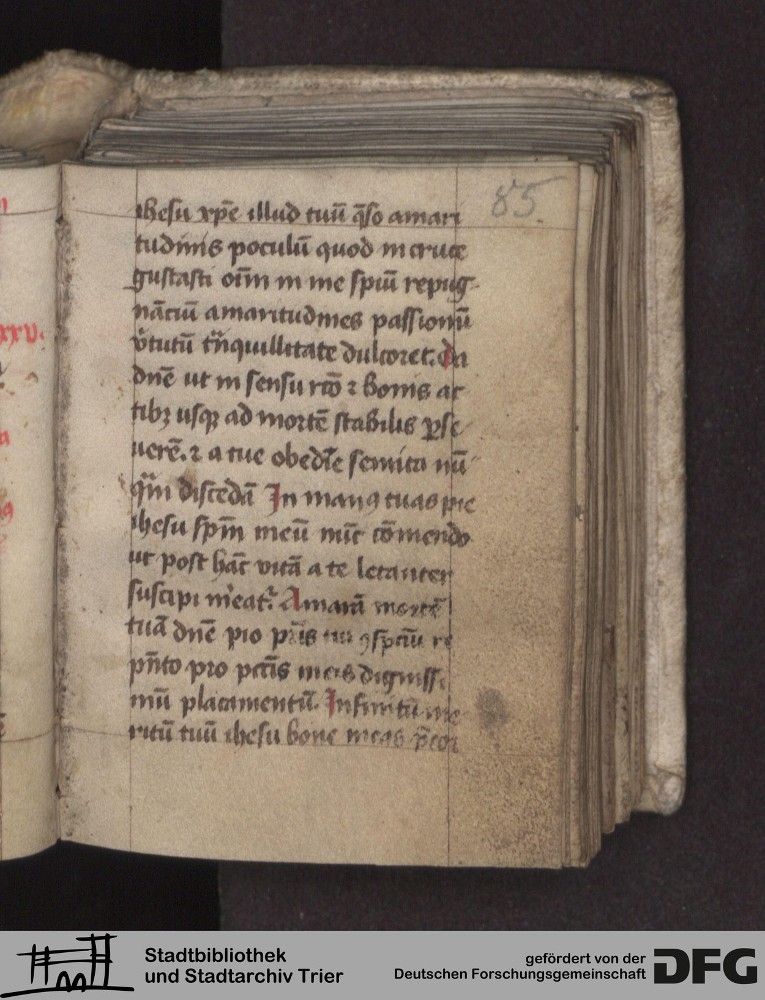 85.
ihesu xp̄e illud tuū q̄so amari
tudinis poculū quod in cruce
gustasti oīm in me spūū repug
nāciū amaritudines passionū
v̓tutū tn̄quillitate dulcoret. Da
dn̄e ut in sensu rc̄o ⁊ bonis ac
tibꝫ usqꝫ ad mortē stabilis ꝑse
uerē. ⁊ a tue obedīe semita nū
qm̄ discedā In manꝰ tuas pie
ihesu spm̄ meū nūc cōmendo
ut post hāc vitā a te letanter
suscipi meat᷑. Amarā mortē
tuā dn̄e pro pr̄is ꝯspc̄iū re
pn̄to pro pcc̄is meis digniss
mū placamentū. Infinitū me
ritū tuū ihesu bone meas p̄cor
xxv.
Stadtbibliothek
und Stadtarchiv Trier
gefördert von der
Deutschen Forschungsgemeinschaft
DFG